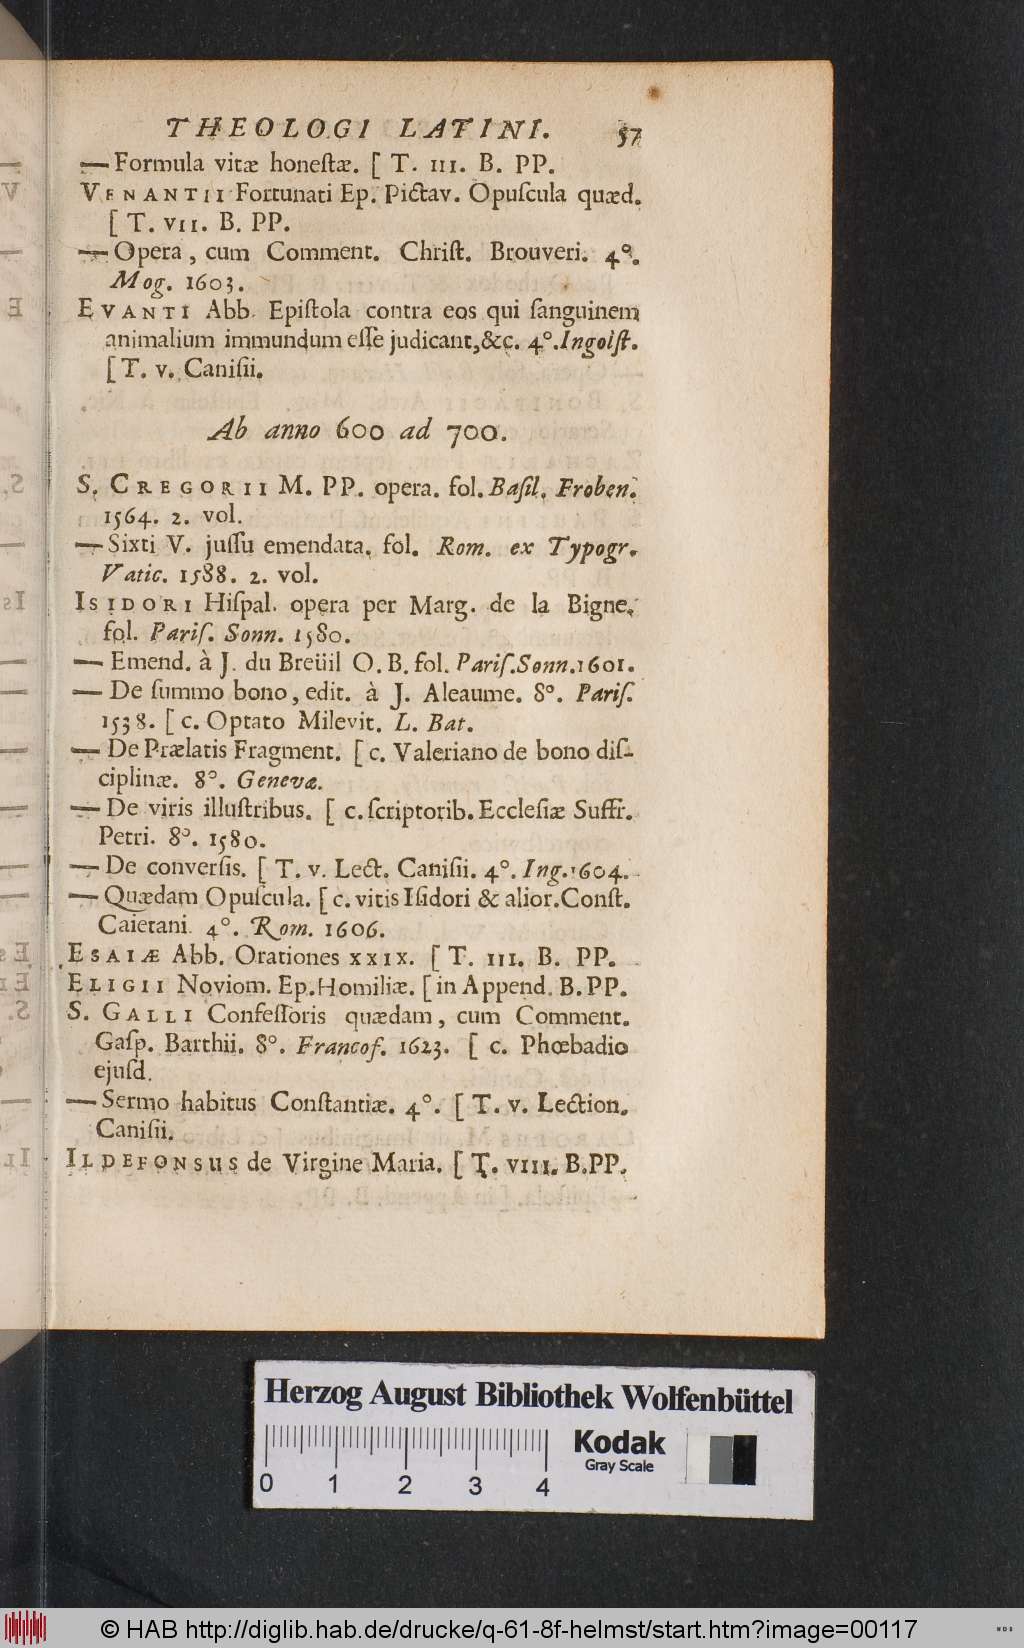 THEOLOGI LATINI. 57
— Formula vitæ honeſtæ. [ T. III. B. PP.
VENANTII Fortunati Ep. Pictav. Opuſcula quæd.
[ T. VII. B. PP.
— Opera, cum Comment. Chriſt. Brouveri. 4°.
Mog. 1603.
EVANTI Abb. Epiſtola contra eos qui ſanguinem
animalium immundum eſſe judicant, &c. 4°. Ingolſt.
[ T. V. Caniſii.
Ab anno 600 ad 700.
S. GREGORII M. PP. opera. fol. Baſil. Froben.
1564. 2. vol.
— Sixti V. juſſu emendata. fol. Rom. ex Typogr.
Vatic. 1588. 2. vol.
ISIDORI Hiſpal. opera per Marg. de la Bigne.
fol. Pariſ. Sonn. 1580.
— Emend. à J. du Breüil O. B. fol. Pariſ. Sonn. 1601.
— De ſummo bono, edit. à J. Aleaume. 8°. Pariſ.
1538. [ c. Optato Milevit. L. Bat.
— De Prælatis Fragment. [ c. Valeriano de bono diſ-
ciplinæ. 8°. Genevæ.
— De viris illuſtribus. [ c. ſcriptorib. Eccleſiæ Suffr.
Petri. 8°. 1580.
— De converſis. [ T. V. Lect. Caniſii. 4°. Ing. 1604.
— Quædam Opuſcula. [ c. vitis Iſidori & alior. Conſt.
Caietani. 4°. Rom. 1606.
ESAIÆ Abb. Orationes XXIX. [ T. III. B. PP.
ELIGII Noviom. Ep. Homiliæ. [ in Append. B. PP.
S. GALLI Confeſſoris quædam, cum Comment.
Gaſp. Barthii. 8°. Francof. 1623. [ c. Phœbadio
ejuſd.
— Sermo habitus Conſtantiæ. 4°. [ T. V. Lection.
Caniſii.
ILDEFONSUS de Virgine Maria. [ T. VIII. B. PP.
Herzog August Bibliothek Wolfenbüttel
Kodak
Gray Scale
0 1 2 3 4
© HAB http://diglib.hab.de/drucke/q-61-8f-helmst/start.htm?image=00117